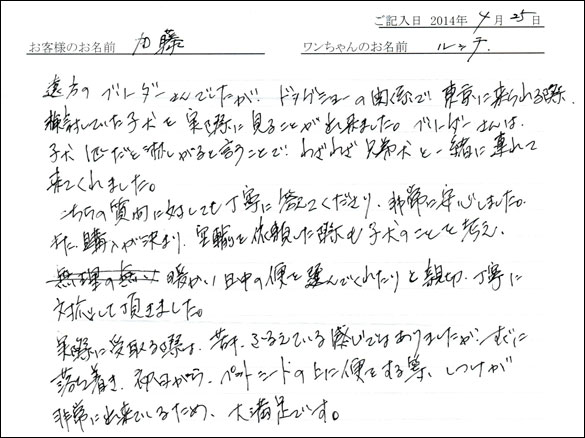 ご記入日 2014年 4月 25日
お客様のお名前 加藤 ワンちゃんのお名前 ルッチ
遠方のブリーダーさんでしたが、ドッグショーの関係で東京に来られる際、
検討していた子犬を実際に見ることが出来ました。ブリーダーさんは、
子犬1匹だと淋しがると言うことで、わざわざ兄弟犬と一緒に連れて
来てくれました。
こちらの質問に対しても丁寧に答えてくださり、非常に安心しました。
また、購入が決まり、空輸を依頼した際も子犬のことを考え、
無理の無い 暖かい日中の便を選んでくれたりと親切、丁寧に
対応して頂きました。
実際に受取る際は、若干、ふるえている感じではありましたが、すぐに
落ち着き、初日から、ペットシーツの上に便をする等、しつけが
非常に出来ているため、大満足です。